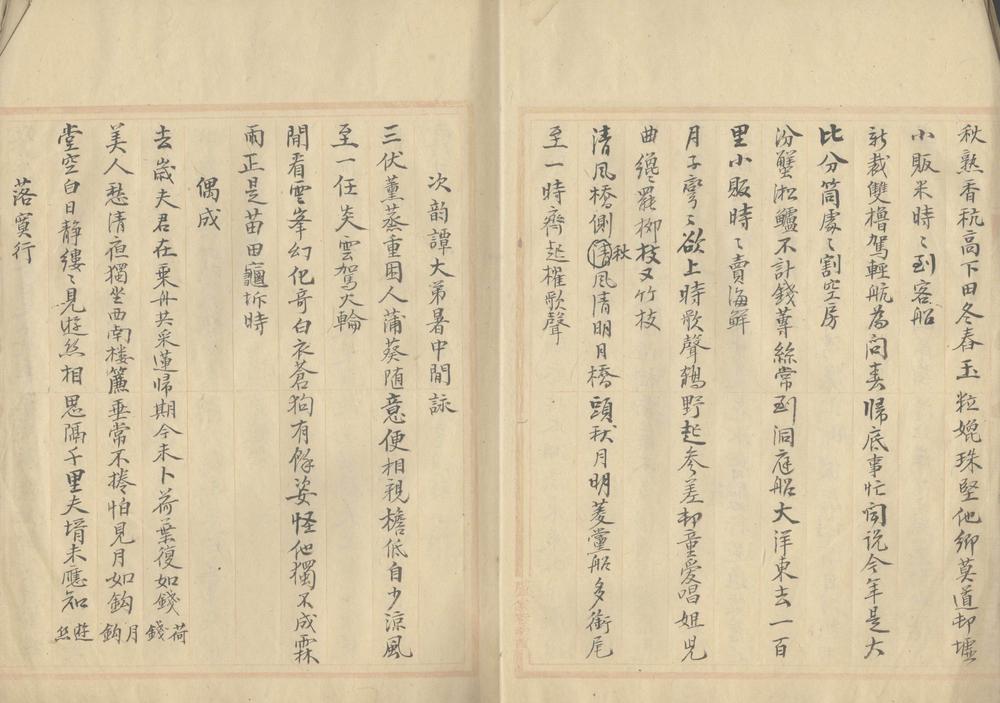 秋熟香秔高下田冬舂玉粒娩珠堅他鄉莫道邨墟
小販米時〻到客船
新裁雙櫓駕輕航為问春歸底事忙闻说今年是大
比分筒處〻割空房
汾蟹淞鱸不計錢蓴絲常到洞庭船大洋東去一百
里小販時〻賣海鮮
月子彎〻欲上時歌聲鶴野起參差邨童愛唱姐兒
曲纔罷柳枝又竹枝
清風橋側清秋風清明月橋頭秋月明菱黨船多銜尾
至一時齊起櫂歌聲
次韵譚大弟暑中閒詠
三伏薰蒸重困人蒲葵随意便相親檐低自少涼風
至一任炎雲駕火輪
閒看雲峯幻化奇白衣蒼狗有餘姿怪他獨不成霖
雨正是苗田龜坼時
偶成
去嵗夫君在乘舟共采蓮歸期今未卜荷葉復如錢荷錢
美人愁清夜獨坐西南楼簾垂常不捲怕見月如鈎月鈎
堂空白日静縷〻見遊丝相思隔千里夫壻未應知遊丝
落寞行